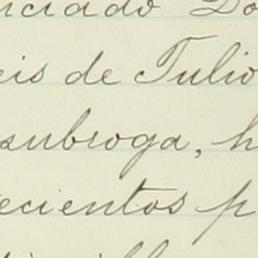 nciado Do
eis de Julio
subroga, h
ecientos p